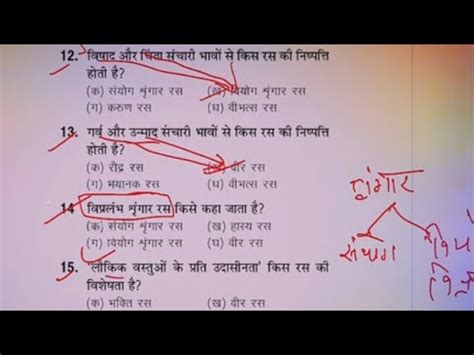 12. विषाद और चिंता संचारी भावों से किस रस की निष्पत्ति
होती है?
(क) संयोग शृंगार रस (ख) वियोग शृंगार रस
(ग) करुण रस (घ) वीभत्स रस
13. गर्व और उन्माद संचारी भावों से किस रस की निष्पत्ति
होती है?
(क) रौद्र रस (ख) वीर रस
(ग) भयानक रस (घ) वीभत्स रस
14. विप्रलंभ शृंगार रस किसे कहा जाता है?
(क) संयोग शृंगार रस (ख) हास्य रस
(ग) वियोग शृंगार रस (घ) वीर रस
15. 'लौकिक वस्तुओं के प्रति उदासीनता' किस रस की
विशेषता है?
(क) भक्ति रस (ख) वीर रस
शृंगार
संयोग